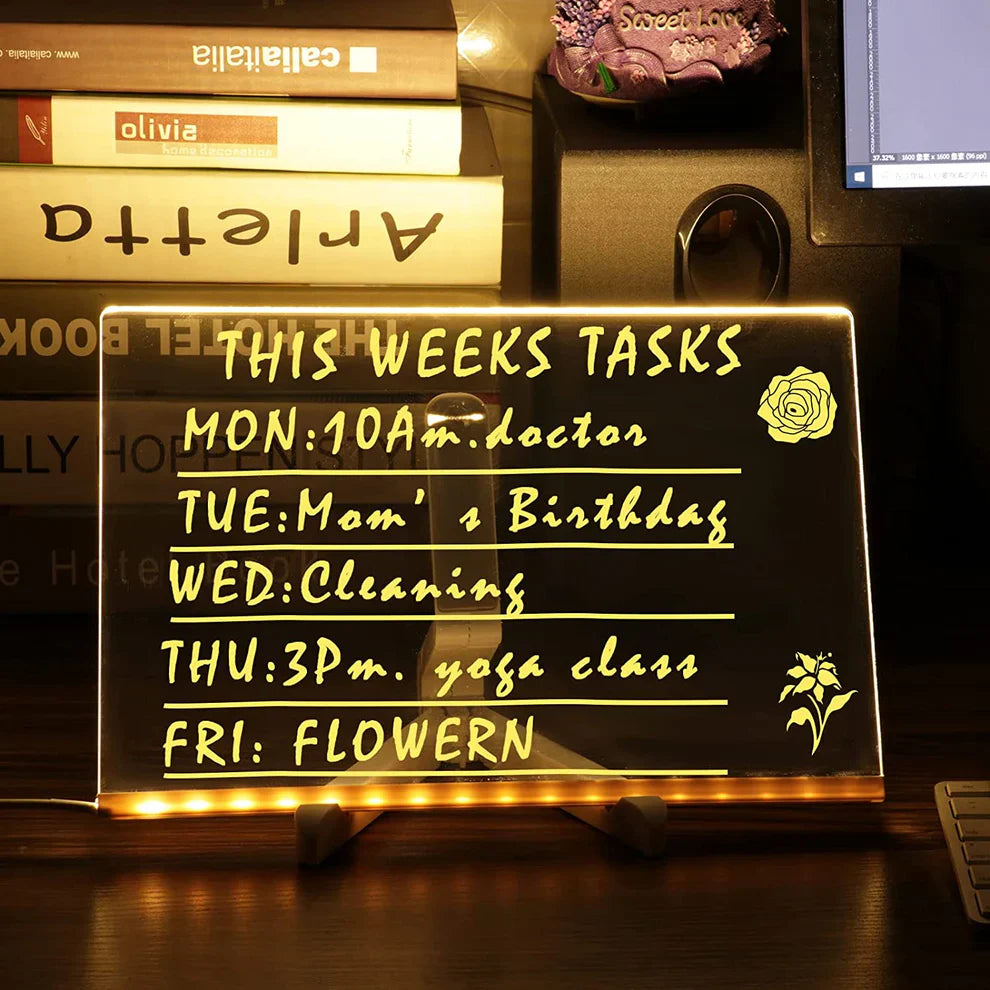 www.caliaitalia.
caliaitalia
olivia
home decoration
Arletta
THE HOTEL BOOK
LLY HOPPEN STY
e Hote
Sweet Love
37.32% 1600 像素 x 1600 像素 (96 ppi)
THIS WEEKS TASKS
MON:10Am.doctor
TUE:Mom's Birthday
WED:Cleaning
THU:3Pm. yoga class
FRI: FLOWERN